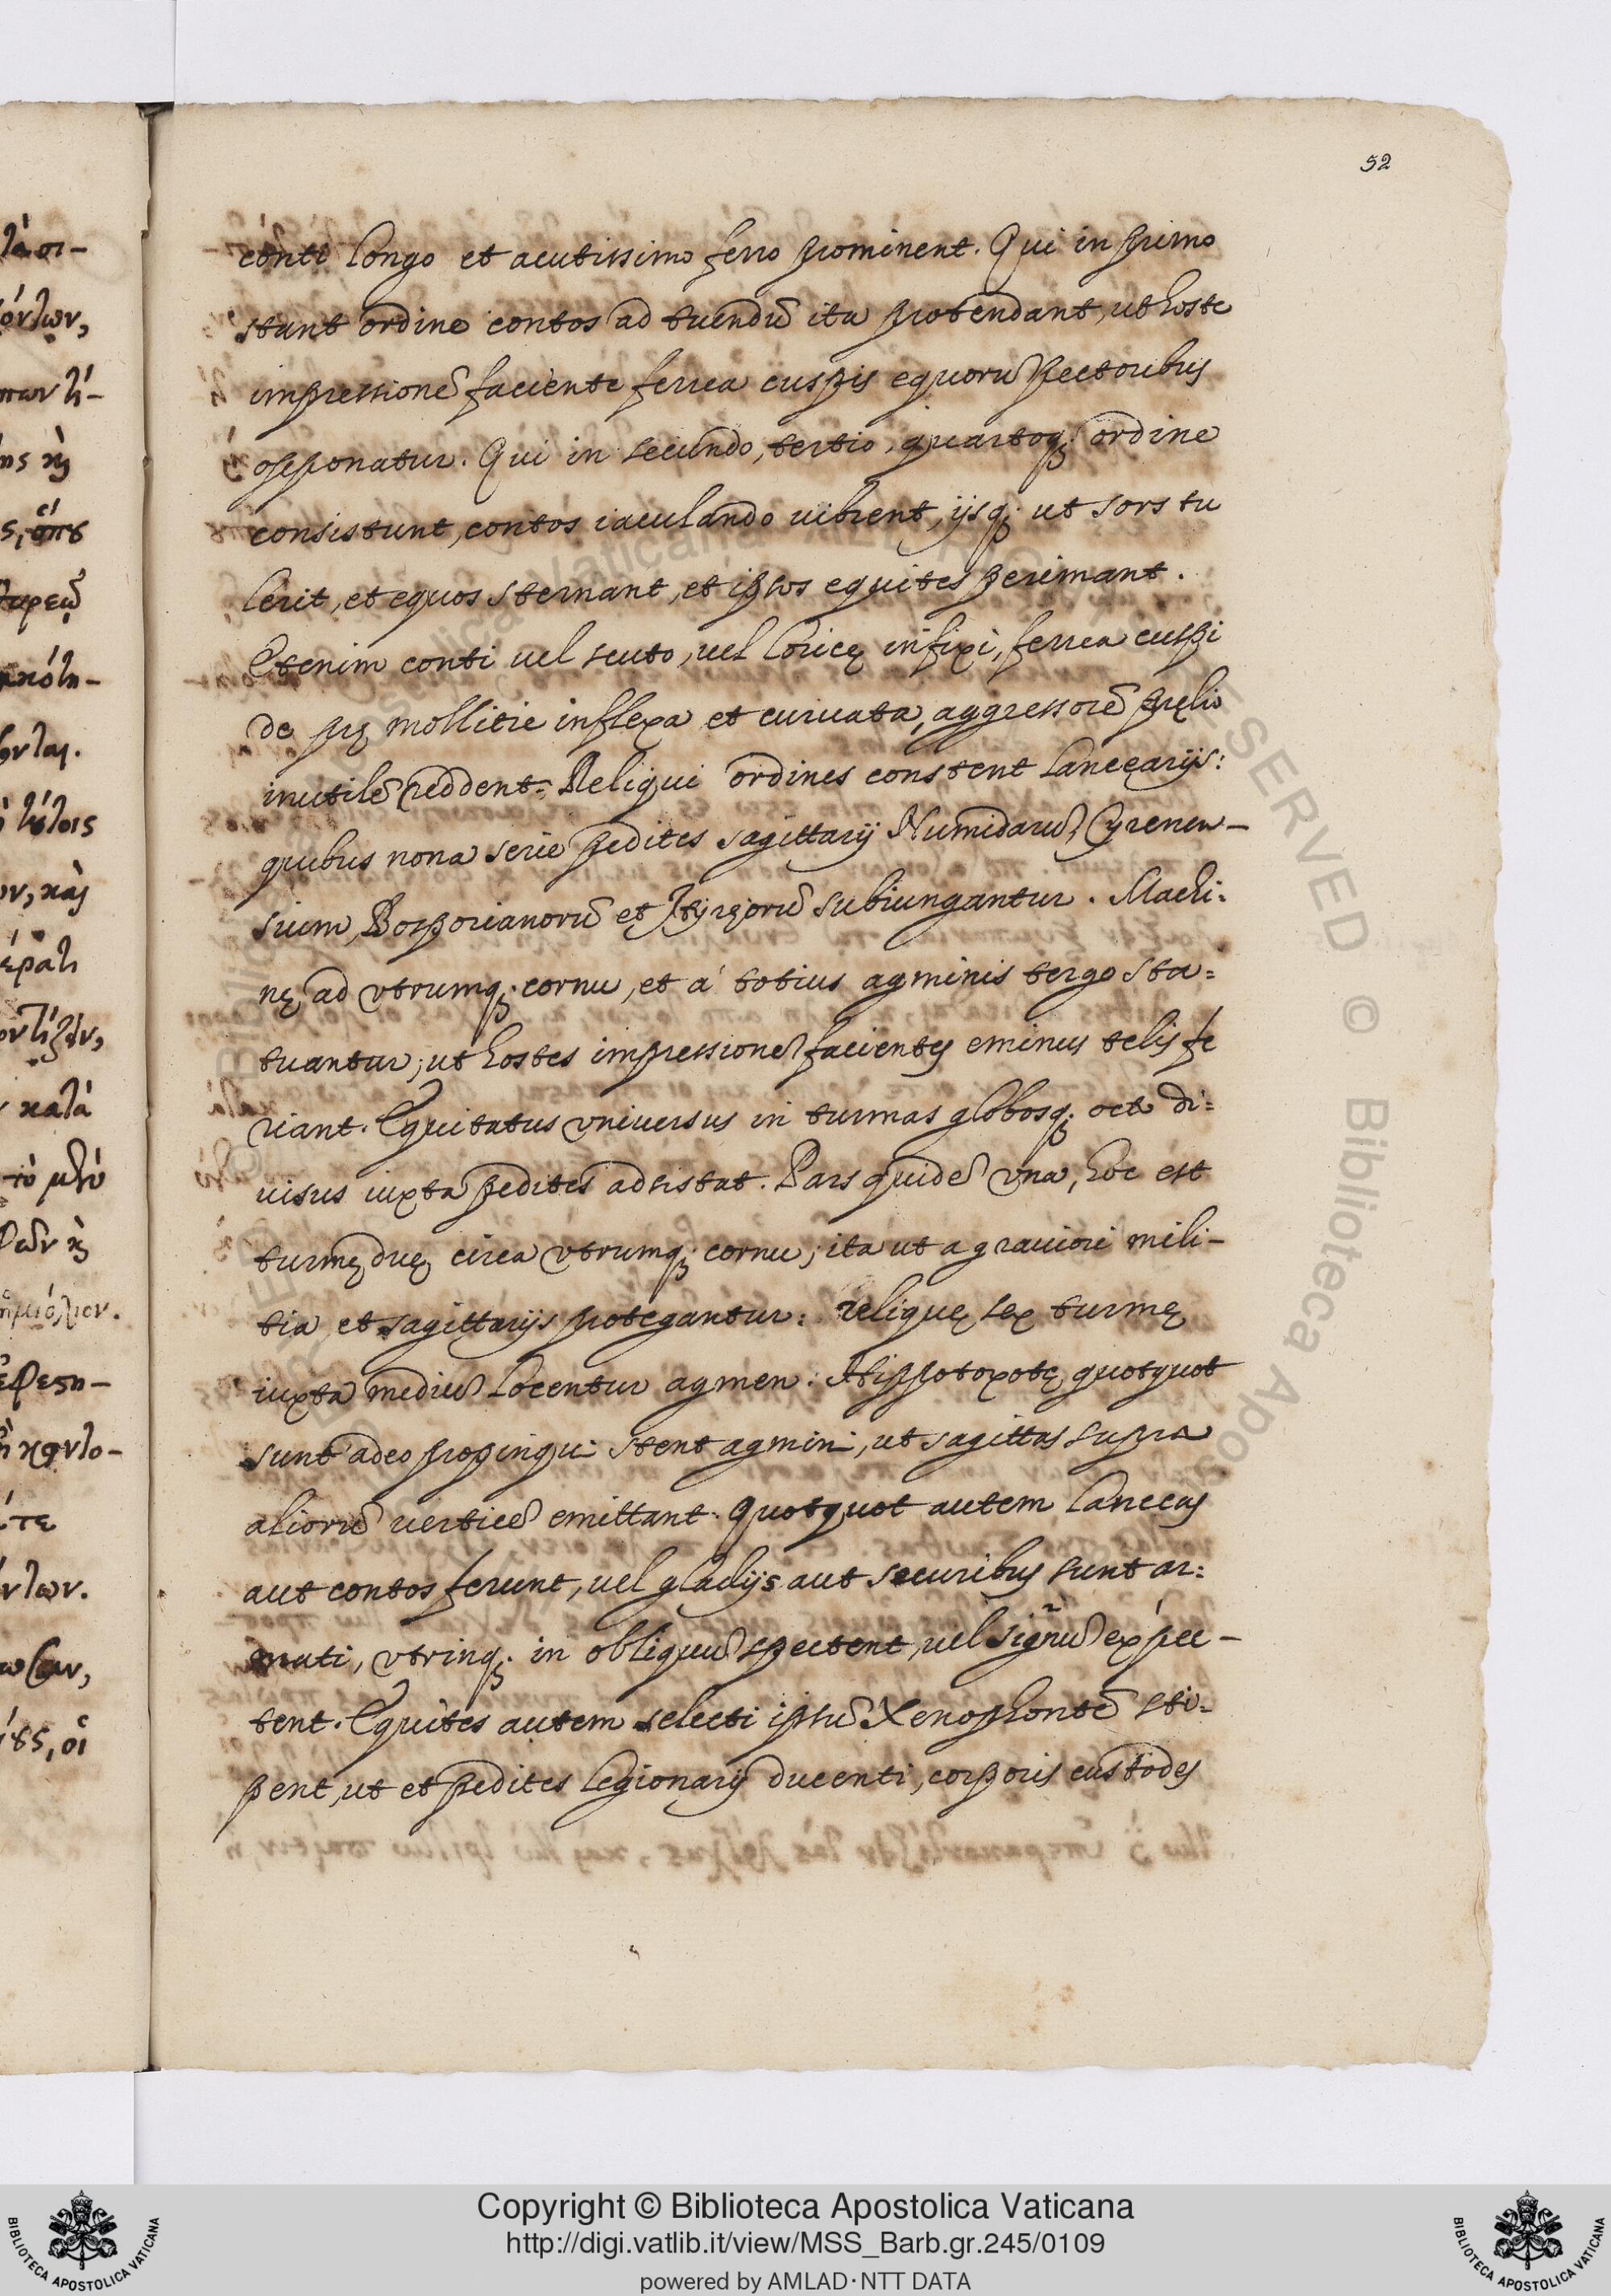 52
conti longo et acutissimo ferro prominent. Qui in primo
stant ordine contos ad tuendũ ita protendant, ut hoste
impressionẽ faciente ferrea cuspis equorũ pectoribus
opponatur. Qui in secundo, tertio, quartoq; ordine
consistunt, contos iaculando vibrent, ijsq; ut sors tu
lerit, et equos sternant, et ipsos equites perimant.
Etenim conti uel scuto, uel loricę infixi, ferrea cuspi
de prę mollitie inflexa et curuata, aggressorẽ pręlio
inutilẽ reddent. Reliqui ordines constent lancearijs:
quibus nona serie pedites sagittarij Numidarũ, Cyrenen-
sium, Bosporianorũ et Ityręorũ subiungantur. Machi:
nę ad utrumq; cornu, et á totius agminis tergo sta=
tuantur; ut hostes impressionẽ facientes eminus telis fe
riant. Equitatus vniuersus in turmas globosq; octo di=
uisus iuxta pedites adsistat. Pars quidẽ vna, hoc est
turmę duę circa utrumq; cornu; ita ut a grauiori mili-
tia et sagittarijs protegantur: reliquę sex turmę
iuxta mediũ locentur agmen. Hippotoxotę quotquot
sunt adeo propinqui stent agmini, ut sagittas supra
aliorũ verticẽ emittant. Quotquot autem lanceas
aut contos ferunt, uel gladijs aut securibus sunt ar:
mati, utrinq; in obliquũ spectent, uel signũ expec-
tent. Equites autem selecti ipsũ Xenophontẽ sti=
pent, ut et pedites legionarij ducenti, corporis custodes
Copyright © Biblioteca Apostolica Vaticana
http://digi.vatlib.it/view/MSS_Barb.gr.245/0109
powered by AMLAD·NTT DATA
BIBLIOTECA APOSTOLICA VATICANA
BIBLIOTECA APOSTOLICA VATICANA